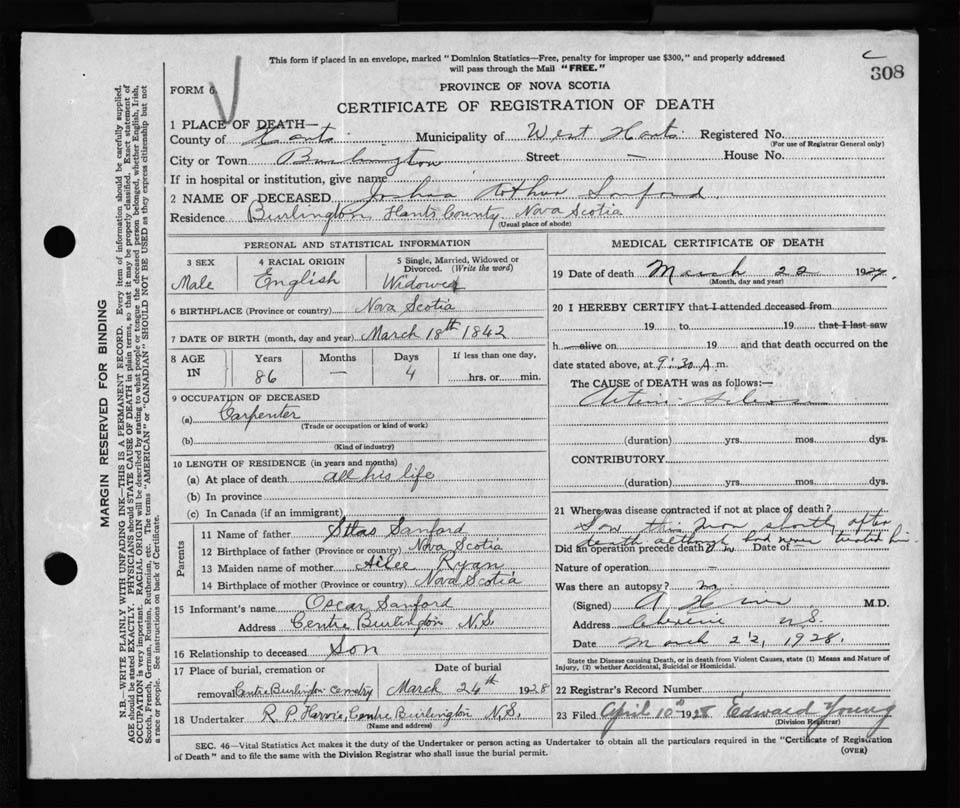 This form if placed in an envelope, marked "Dominion Statistics—Free, penalty for improper use $300," and properly addressed
will pass through the Mail "FREE."
308
FORM 6
PROVINCE OF NOVA SCOTIA
CERTIFICATE OF REGISTRATION OF DEATH
1 PLACE OF DEATH—
County of Hants Municipality of West Hants Registered No.
(For use of Registrar General only)
City or Town Burlington Street — House No.
If in hospital or institution, give name
2 NAME OF DECEASED Joshua Arthur Sanford
Residence Burlington Hants County Nova Scotia
(Usual place of abode)
PERSONAL AND STATISTICAL INFORMATION
3 SEX 4 RACIAL ORIGIN 5 Single, Married, Widowed or
Divorced. (Write the word)
Male English Widowed
6 BIRTHPLACE (Province or country) Nova Scotia
7 DATE OF BIRTH (month, day and year) March 18th 1842
8 AGE IN Years Months Days If less than one day,
86 — 4 hrs. or min.
9 OCCUPATION OF DECEASED
(a) Carpenter
(Trade or occupation or kind of work)
(b)
(Kind of industry)
10 LENGTH OF RESIDENCE (in years and months)
(a) At place of death all his life
(b) In province
(c) In Canada (if an immigrant)
Parents
11 Name of father Silas Sanford
12 Birthplace of father (Province or country) Nova Scotia
13 Maiden name of mother Ryan
14 Birthplace of mother (Province or country) Nova Scotia
15 Informant's name Oscar Sanford
Address Centre Burlington N.S.
16 Relationship to deceased Son
17 Place of burial, cremation or Date of burial
removal Centre Burlington Cemetry March 24th 1928
18 Undertaker R. P. Harvie, Centre Burlington N.S.
(Name and address)
MEDICAL CERTIFICATE OF DEATH
19 Date of death March 22 192
(Month, day and year)
20 I HEREBY CERTIFY that I attended deceased from
19 to 19 that I last saw
h alive on 19 and that death occurred on
date stated above, at 9:30 A. m.
The CAUSE of DEATH was as follows:—
(duration) yrs. mos. dys.
CONTRIBUTORY
(duration) yrs. mos. dys.
21 Where was disease contracted if not at place of death?
Saw this man shortly after
death although had never treated him
Did an operation precede death? no Date of —
Nature of operation —
Was there an autopsy? no
(Signed) M.D.
Address N.S.
Date March 22, 1928.
State the Disease causing Death, or in death from Violent Causes, state (1) Means and Nature of
Injury, (2) whether Accidental, Suicidal or Homicidal.
22 Registrar's Record Number
23 Filed April 10th 1928 Edward Young
(Division Registrar)
SEC. 46—Vital Statistics Act makes it the duty of the Undertaker or person acting as Undertaker to obtain all the particulars required in the "Certificate of Registration
of Death" and to file the same with the Division Registrar who shall issue the burial permit.
(OVER)
MARGIN RESERVED FOR BINDING
N.B.—WRITE PLAINLY WITH UNFADING INK—THIS IS A PERMANENT RECORD. Every item of information should be carefully supplied.
AGE should be stated EXACTLY. PHYSICIANS should STATE CAUSE OF DEATH in plain terms, so that it may be properly classified. Exact statement of
OCCUPATION is very important. RACIAL ORIGIN will be described by stating to what people or tongue the deceased person belonged, whether English, Irish,
Scotch, French, German, Russian, Ruthenian, etc. The terms "AMERICAN" or "CANADIAN" SHOULD NOT BE USED as they express citizenship but not
a race or people. See instructions on back of Certificate.